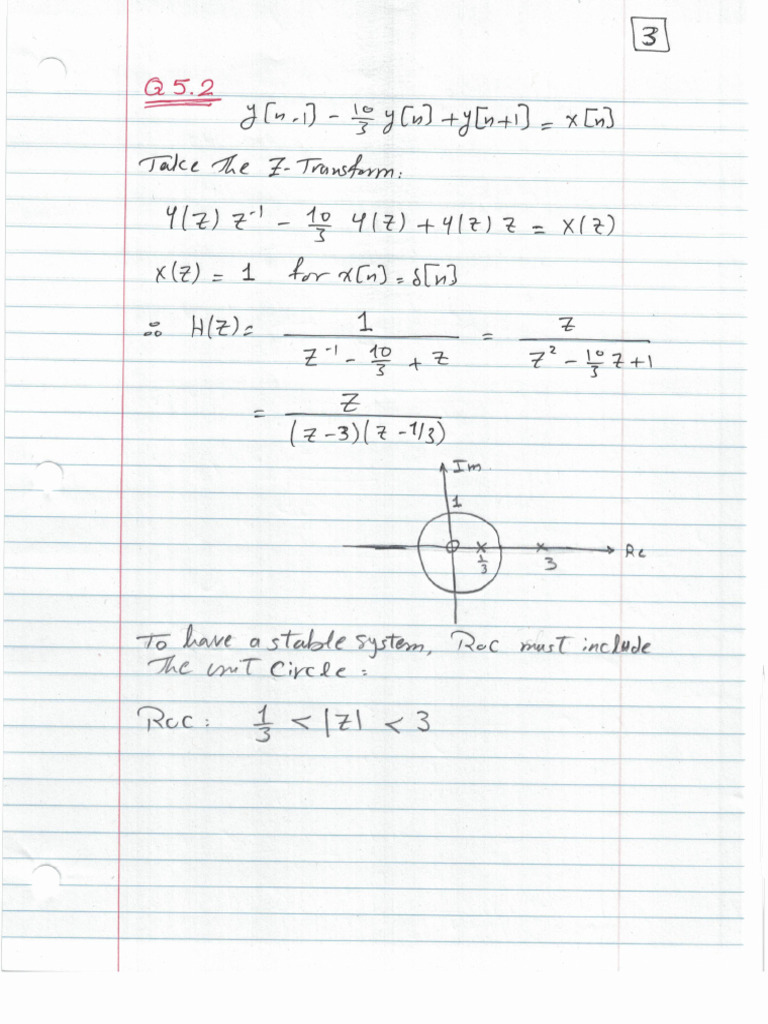 3
Q 5.2
y[n-1] - 10/3 y[n] + y[n+1] = x[n]
Take the Z-Transform:
Y(Z) Z⁻¹ - 10/3 Y(Z) + Y(Z) Z = X(Z)
X(Z) = 1 for x[n] = δ[n]
∴ H(Z) = 1 / (Z⁻¹ - 10/3 + Z) = Z / (Z² - 10/3 Z + 1)
= Z / ((Z-3)(Z-1/3))
Im
1
Re
1/3
3
To have a stable system, Roc must include
The unit Circle:
Roc: 1/3 < |Z| < 3